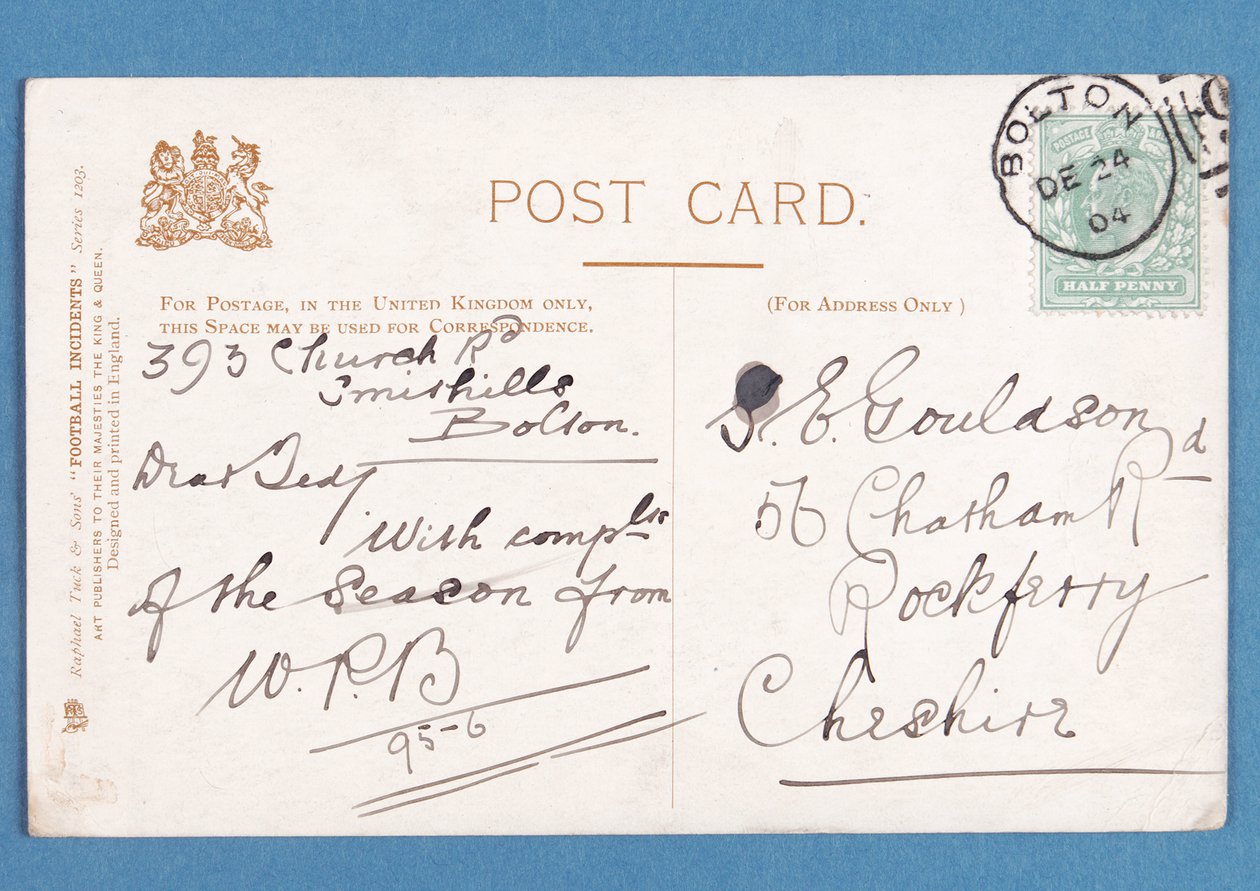 POST CARD.
BOLTON
DE 24
04
POSTAGE
HALF PENNY
FOR POSTAGE, IN THE UNITED KINGDOM ONLY,
THIS SPACE MAY BE USED FOR CORRESPONDENCE.
(FOR ADDRESS ONLY)
Raphael Tuck & Sons' "FOOTBALL INCIDENTS" Series 1203.
ART PUBLISHERS TO THEIR MAJESTIES THE KING & QUEEN.
Designed and printed in England.
393 Church Rd
Smithills
Bolton.
Dear Ted,
With complts
of the season from
W.P.B
95-6
E. Gouldson
56 Chatham Rd
Rockferry
Cheshire